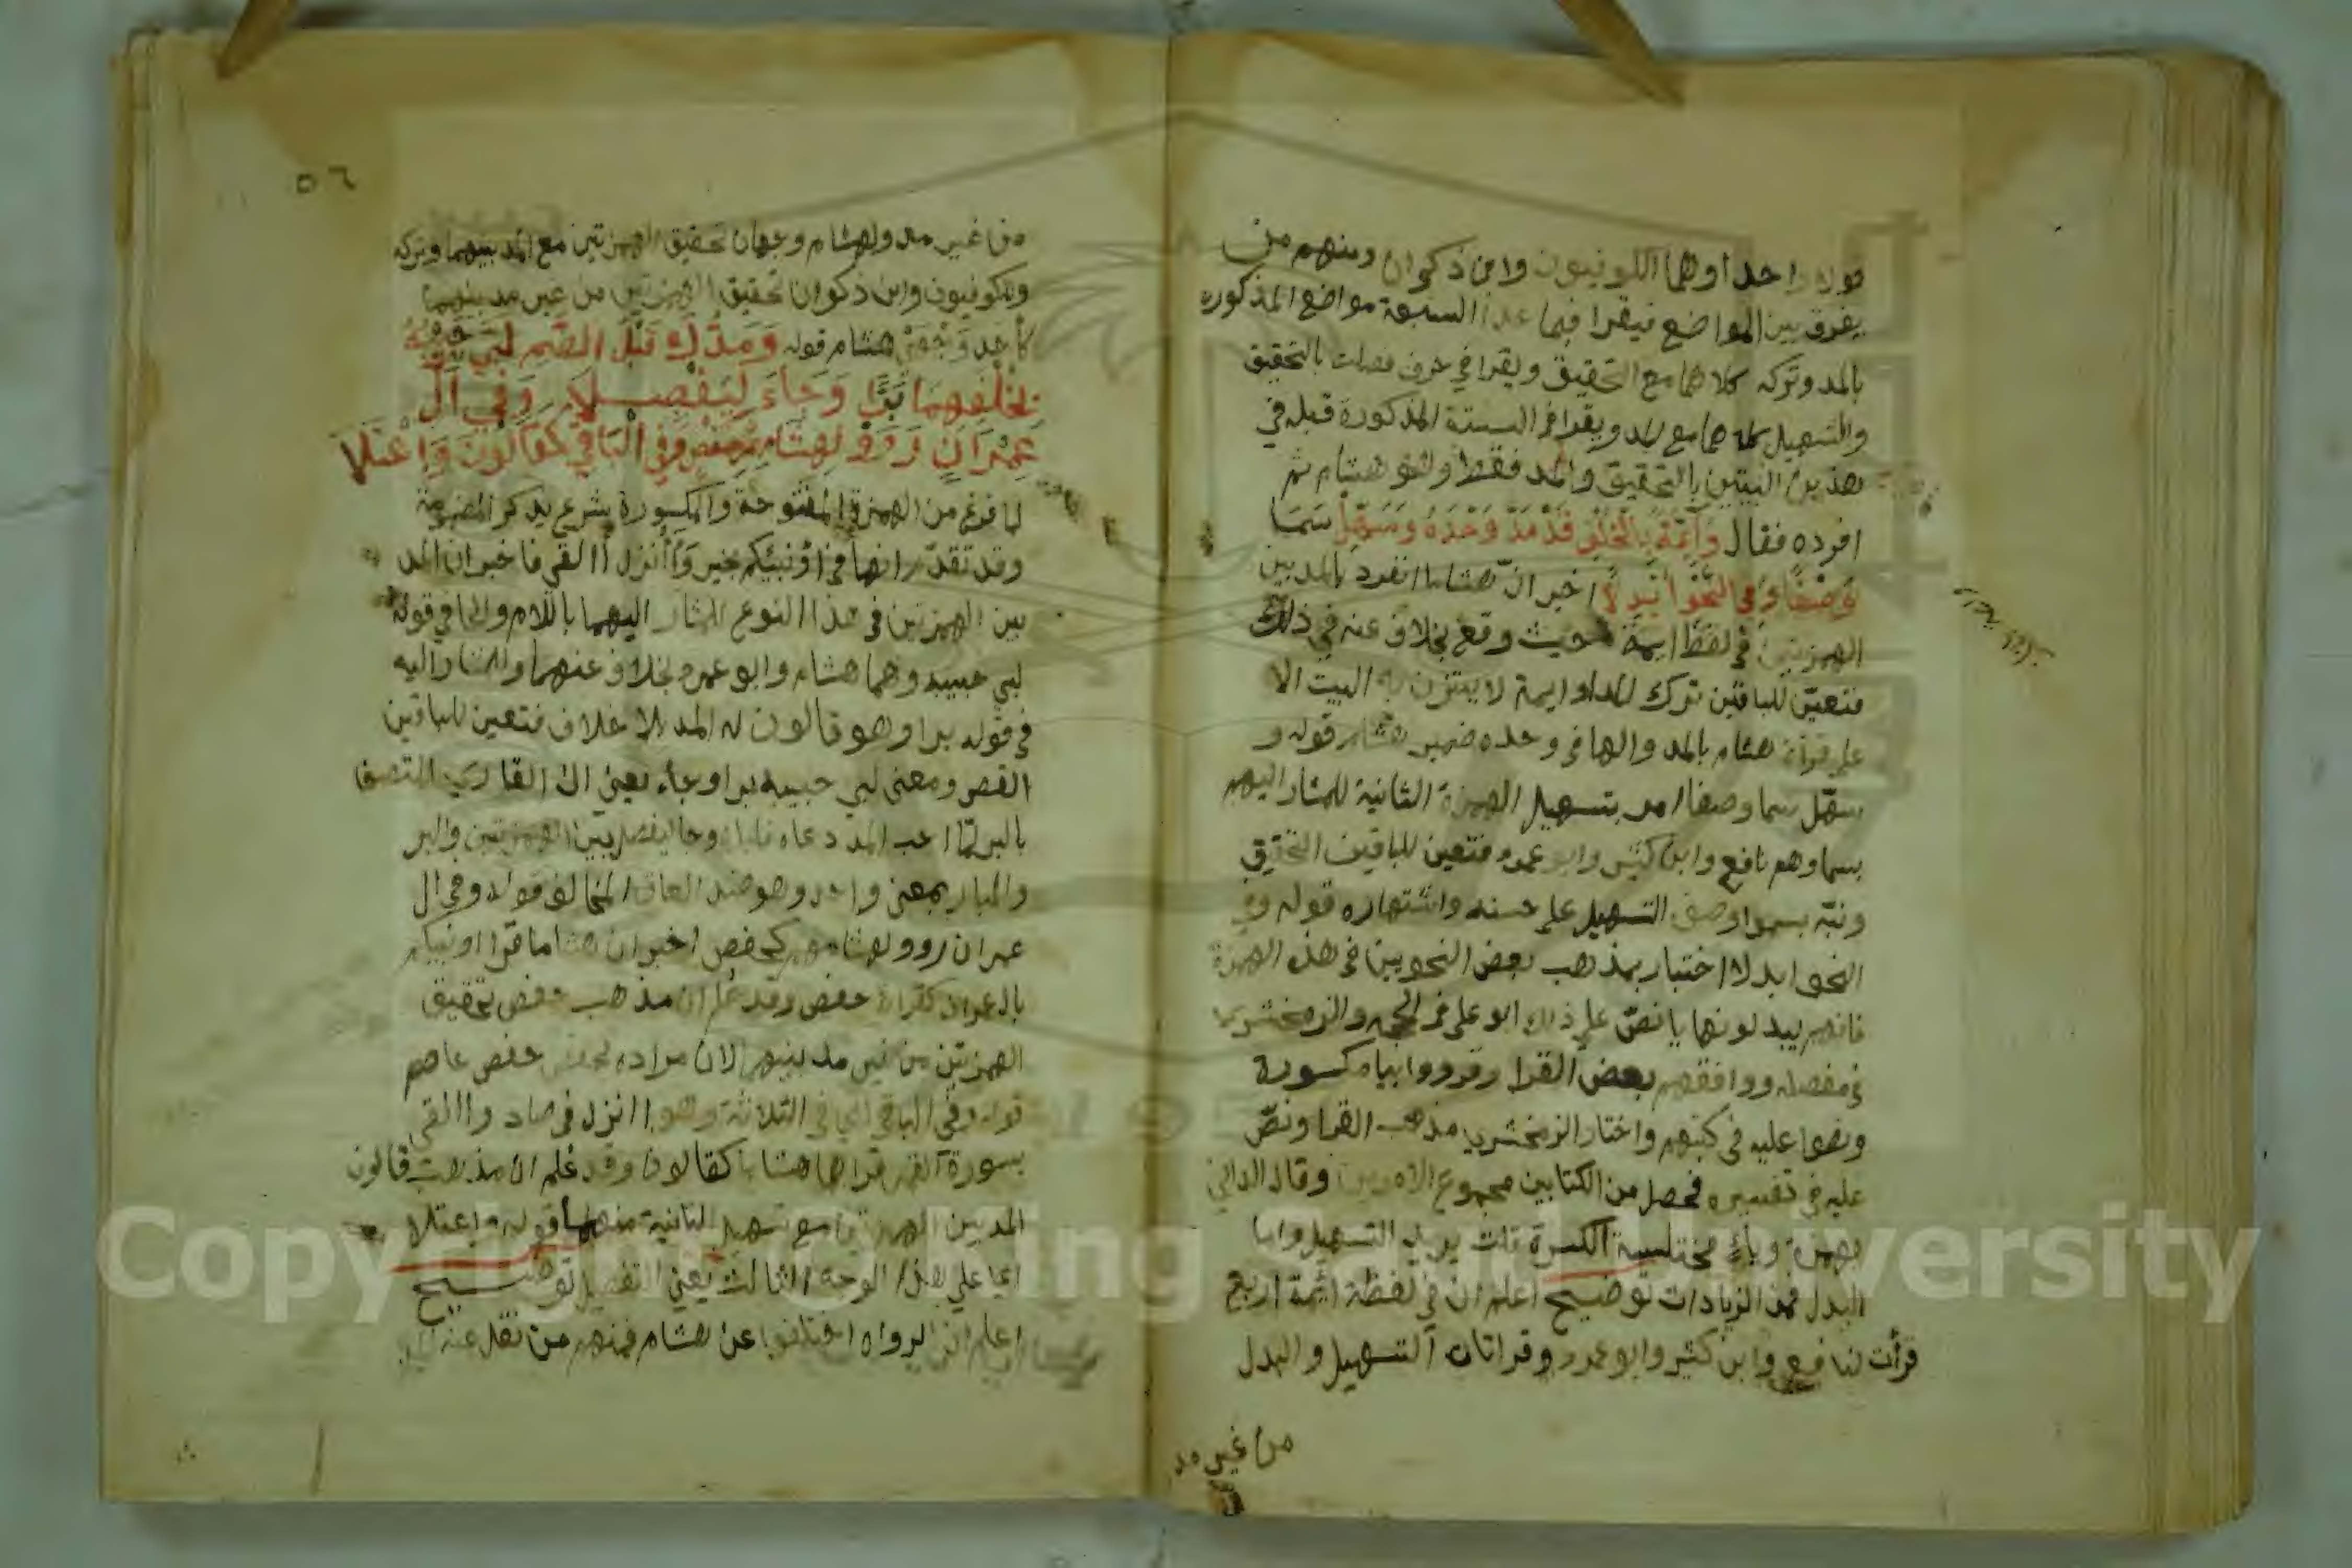 قولا واحدا وهما الكوفيون وابن ذكوان ومنهم من
يفرق بين المواضع فيقرا فيما عدا السبعة مواضع المذكوره
بالمد وتركه كلاهما مع التحقيق ويقرا في حرف فصلت بالتحقيق
والتسهيل كلاهما مع المد ويقرا في الستة المذكورة قبله في
هذين البيتين بالتحقيق والمد فقط وهو هشام ثم
افرده فقال وَآئِمَّةً بِالْخُلْفِ قَدْ مَدَّ وَحْدَهُ وَسَهِّلْ سَمَا
وَصْفًا وَفِي النَّحْوِ أُبْدِلَا اخبر انّ هشاما انفرد بالمد بين
الهمزتين في لفظ ايمة حيث وقع بخلاف عنه في ذلك
فتعيّن للباقين ترك المد وايمة لا يتزن به البيت الا
على قراة هشام بالمد والها في وحده ضمير هشام قوله و
سهّل سما وصفا امر بتسهيل الهمزة الثانية للمشار اليهم
بسما وهم نافع وابن كثير وابو عمرو فتعين للباقين التحقيق
ونبّه بسمو وصف التسهيل على حسنه واشتهاره قوله وفي
النحو ابدلا اختبار بمذهب بعض النحويين في هذه الهمزة
فانهم يبدلونها يا نصّ على ذلك ابو على في الحجه والزمخشري
في مفصله ووافقهم بعض القرا وقرووا بياء مكسورة
ونصوا عليه في كتبهم واختار الزمخشري مذهب القرا ونصّ
عليه في تفسيره فحصل من الكتابين مجموع الامرين وقال الداني
بهمزة وياءٍ مختلسة الكسرة قلت يريد التسهيل واما
البدل فمن الزيادات توضيح اعلم ان في لفظة ائمة اربع
قرأت لنافع وابن كثير وابو عمرو قراتان التسهيل والبدل
من غير مد
٥٦
من غير مد ولهشام وجهان تحقيق الهمزتين مع المد بينهما وتركه
وللكوفيون وابن ذكوان تحقيق الهمزتين من غير مد بينهما
كأحد وَجْهَيْ هشام قوله وَمَدُّكَ قَبْلَ الضَّمِّ لَبَّى حَبِيبُهُ
بِخُلْفِهِمَا بَرًّا وَجَاءَ لِيَفْصِلَا وَفِي آلِ
عِمْرَانَ رَوَوْا لِهِشَامِهِمْ كَحَفْصٍ وَفِي الْبَاقِي كَقَالُونَ وَاعْتَلَا
لما فرغ من الهمزة المفتوحة والمكسورة شرع يذكر المضمومة
وقد تقدّم انها في اؤنبئكم بخير وَأأنزل أالقي فاخبر ان المد
بين الهمزتين في هذا النوع للمشار اليهما باللام والحا في قوله
لبى حبيبه وهما هشام وابو عمرو بخلاف عنهما وللمشار اليه
في قوله برا وهو قالون له المد بلا خلاف فتعين للباقين
القصر ومعنى لبي حبيبه برا وجاء يعني ان القاري المتصف
بالبر لمّا احب المد دعاه فلباه وجا ليفصل بين الهمزتين والبر
والبار بمعنى واحد وهو ضد العاق المخالف قوله وفي ال
عمران رووا لهشامهم كحفص اخبر ان هشاما قرا اونبيكم
بال عمران كقراة حفص وقد علم ان مذهب حفص تحقيق
الهمزتين من غير مد بينهما لان مراده بحفص حفص عاصم
قوله وفي الباقي اي في الثلاثة وهو اانزل في صاد واالقي
بسورة القمر قراها هشاما كقالون وقد علم ان مذهب قالون
المد بين الهمزتين مع تسهيل الثانية منهما قوله واعتلا
اي على هذا الوجه الثالث يعني التفصيل توضيح
اعلم ان الرواه اختلفوا عن هشام فمنهم من نقل عنه